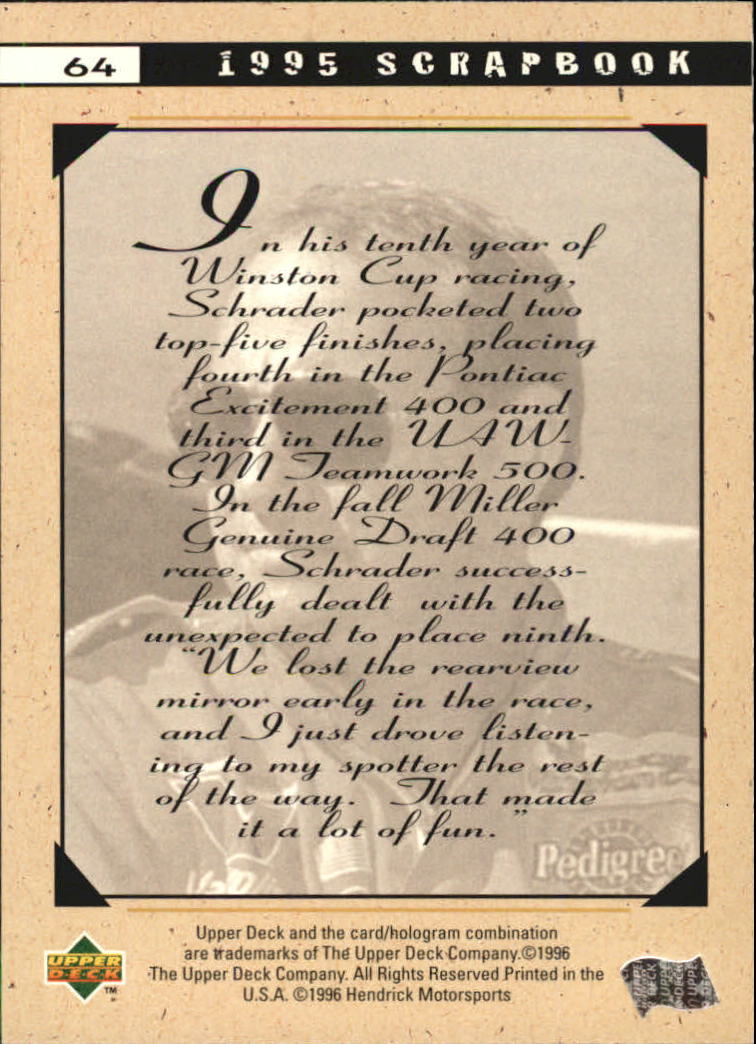 64
1995 SCRAPBOOK
In his tenth year of
Winston Cup racing,
Schrader pocketed two
top-five finishes, placing
fourth in the Pontiac
Excitement 400 and
third in the UAW-
GM Teamwork 500.
In the fall Miller
Genuine Draft 400
race, Schrader success-
fully dealt with the
unexpected to place ninth.
"We lost the rearview
mirror early in the race,
and I just drove listen-
ing to my spotter the rest
of the way. That made
it a lot of fun."
Pedigree
Upper Deck and the card/hologram combination
are trademarks of The Upper Deck Company.©1996
The Upper Deck Company. All Rights Reserved Printed in the
U.S.A. ©1996 Hendrick Motorsports
UPPER
DECK
TM